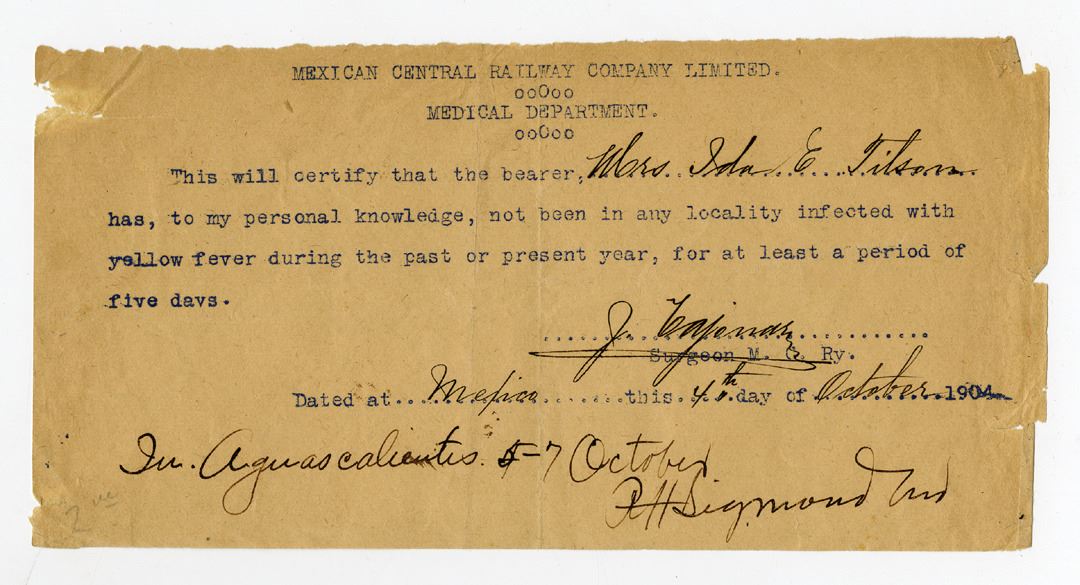 MEXICAN CENTRAL RAILWAY COMPANY LIMITED.
ooOoo
MEDICAL DEPARTMENT.
ooOoo
This will certify that the bearer, Mrs. Ida E. Tilson
has, to my personal knowledge, not been in any locality infected with
yellow fever during the past or present year, for at least a period of
five days.
J.
Surgeon M. C. Ry.
Dated at Mexico this 4th day of October 1904
In Aguascalientes 5-7 October
RH Sigmond MD
2